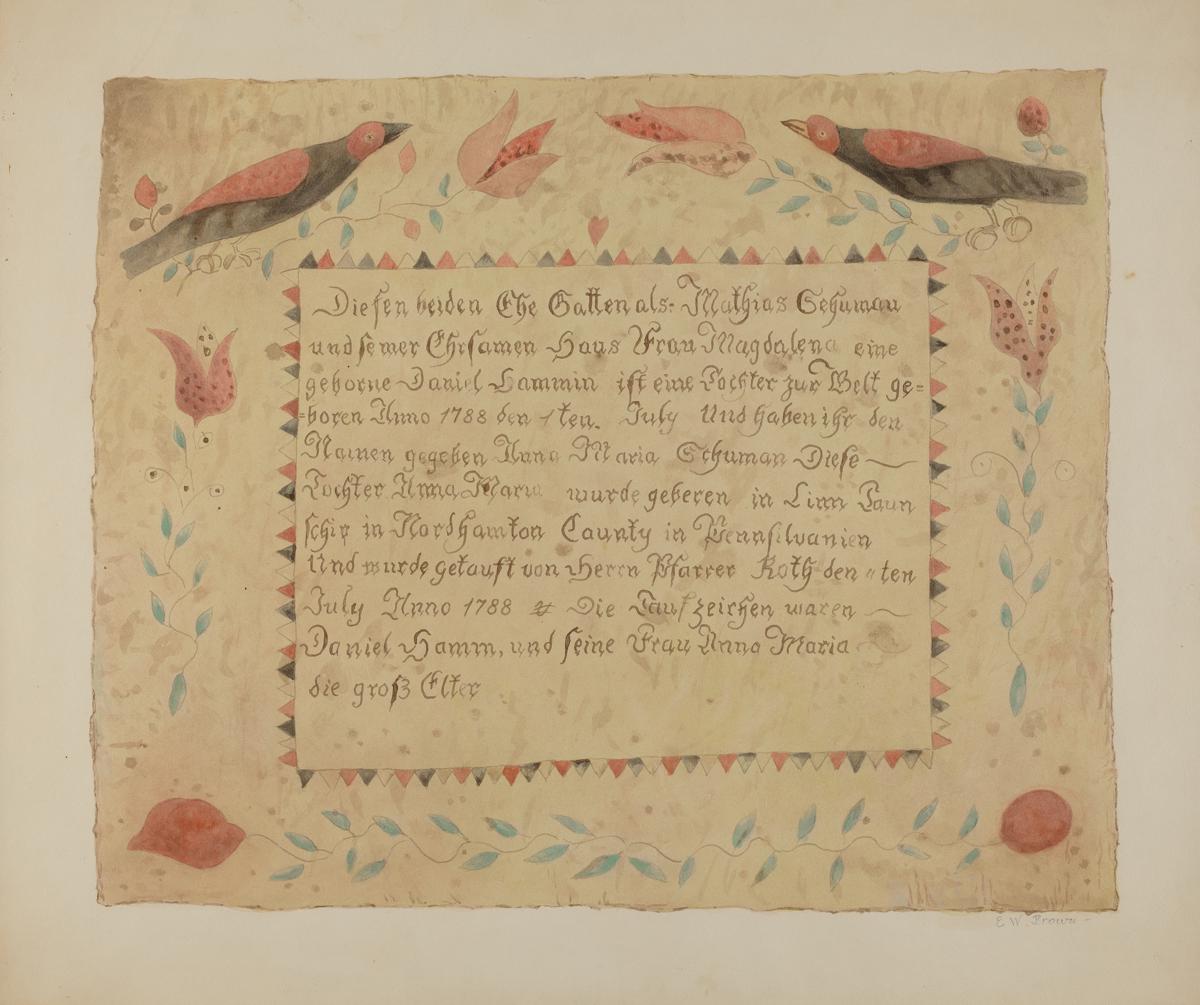 Diesen beiden Ehe Gatten als: Mathias Schuman
und seiner Ehrsamen Haus Frau Magdalena eine
geborne Daniel Hammin ist eine Tochter zur Welt ge=
=boren Anno 1788 den 1ten. July Und haben ihr den
Namen gegeben Anna Maria Schuman Diese
Tochter Anna Maria wurde geboren in Linn Taun
schip in Nordhamton Caunty in Pennsilvanien
Und wurde getauft von Herrn Pfarrer Roth den ten
July Anno 1788 Die Taufzeichen waren
Daniel Hamm, und seine Frau Anna Maria
die groß Elter
E. W. Brown